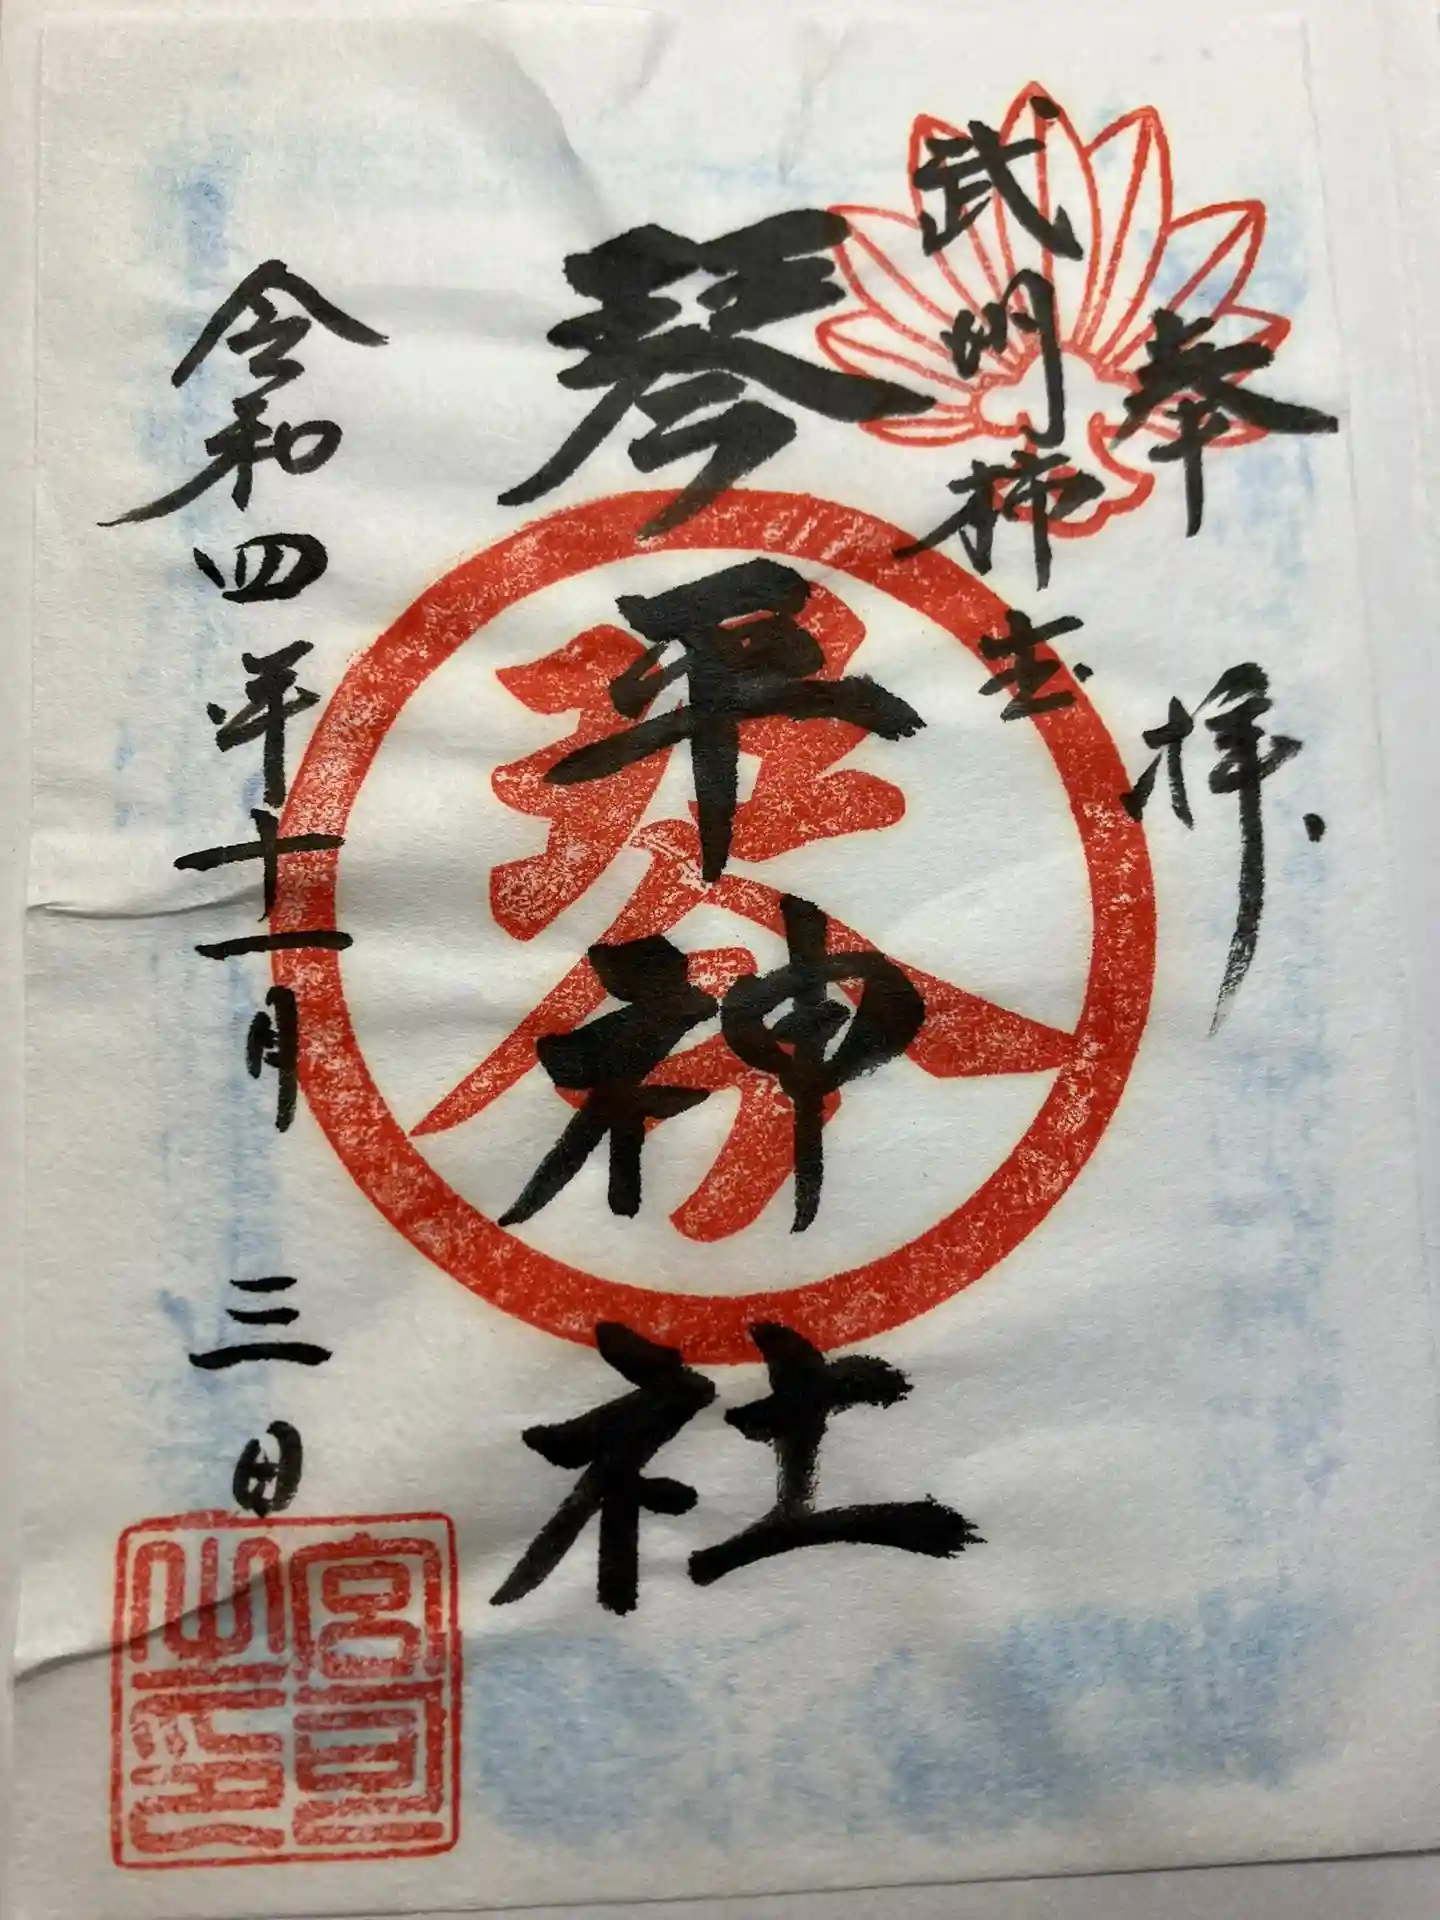 奉拝
武州柿生
琴平神社
令和四年十一月三日
琴
宮司之印